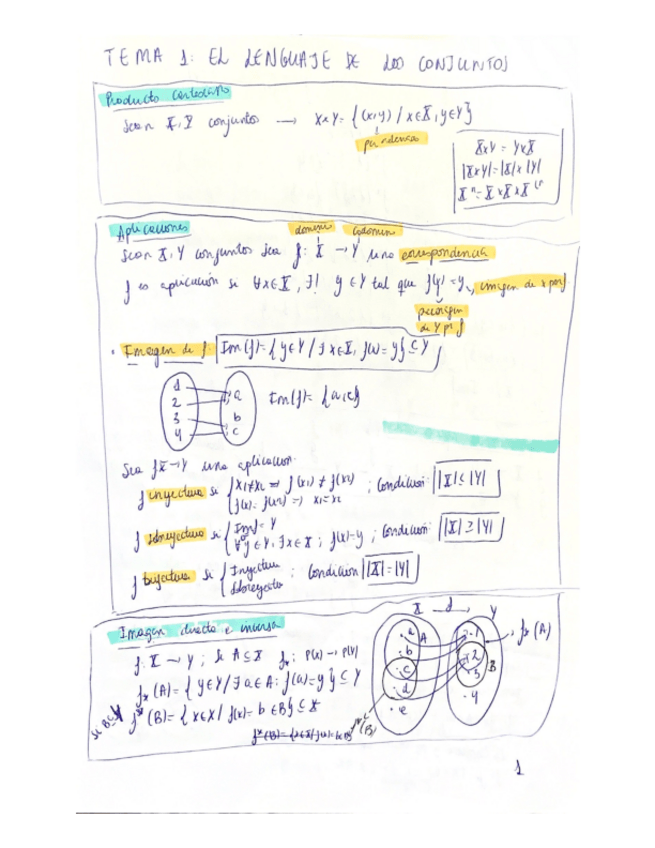 TEMA 1: EL LENGUAJE DE LOS CONJUNTOS
Producto cartesiano
Sean X, Y conjuntos → X×Y = {(x,y) / x∈X, y∈Y}
X×Y = Y×X
|X×Y| = |X|×|Y|
Xⁿ = X×X×X
Aplicaciones
dominio codominio
Sean X, Y conjuntos sea f: X → Y una correspondencia
f es aplicación si ∀x∈X, ∃! y∈Y tal que f(x)=y, imagen de x por f
preimagen
de y por f
• Imagen de f: Im(f) = {y∈Y / ∃x∈X, f(x)=y} ⊆ Y
1 2 3 4
a b c
Im(f) = {a,c}
Sea f: X→Y una aplicación.
f inyectiva si { x1≠x2 ⇒ f(x1) ≠ f(x2) ; Condición: |X| ≤ |Y|
f(x1) = f(x2) ⇒ x1=x2
f sobreyectiva si { Imf = Y
∀y∈Y, ∃x∈X ; f(x)=y ; Condición: |X| ≥ |Y|
f biyectiva si { Inyectiva ; Condición |X| = |Y|
Sobreyectiva
Imagen directa e inversa
f: X → Y ; si A⊆X f* : P(X) → P(Y)
f* (A) = { y∈Y / ∃ a∈A : f(a)=y } ⊆ Y
si B⊆Y f* (B) = { x∈X / f(x) = b ∈B} ⊆ X
X f → Y
a b c d e
A
1 2 3 4
B
f* (A)
f* (B)
1